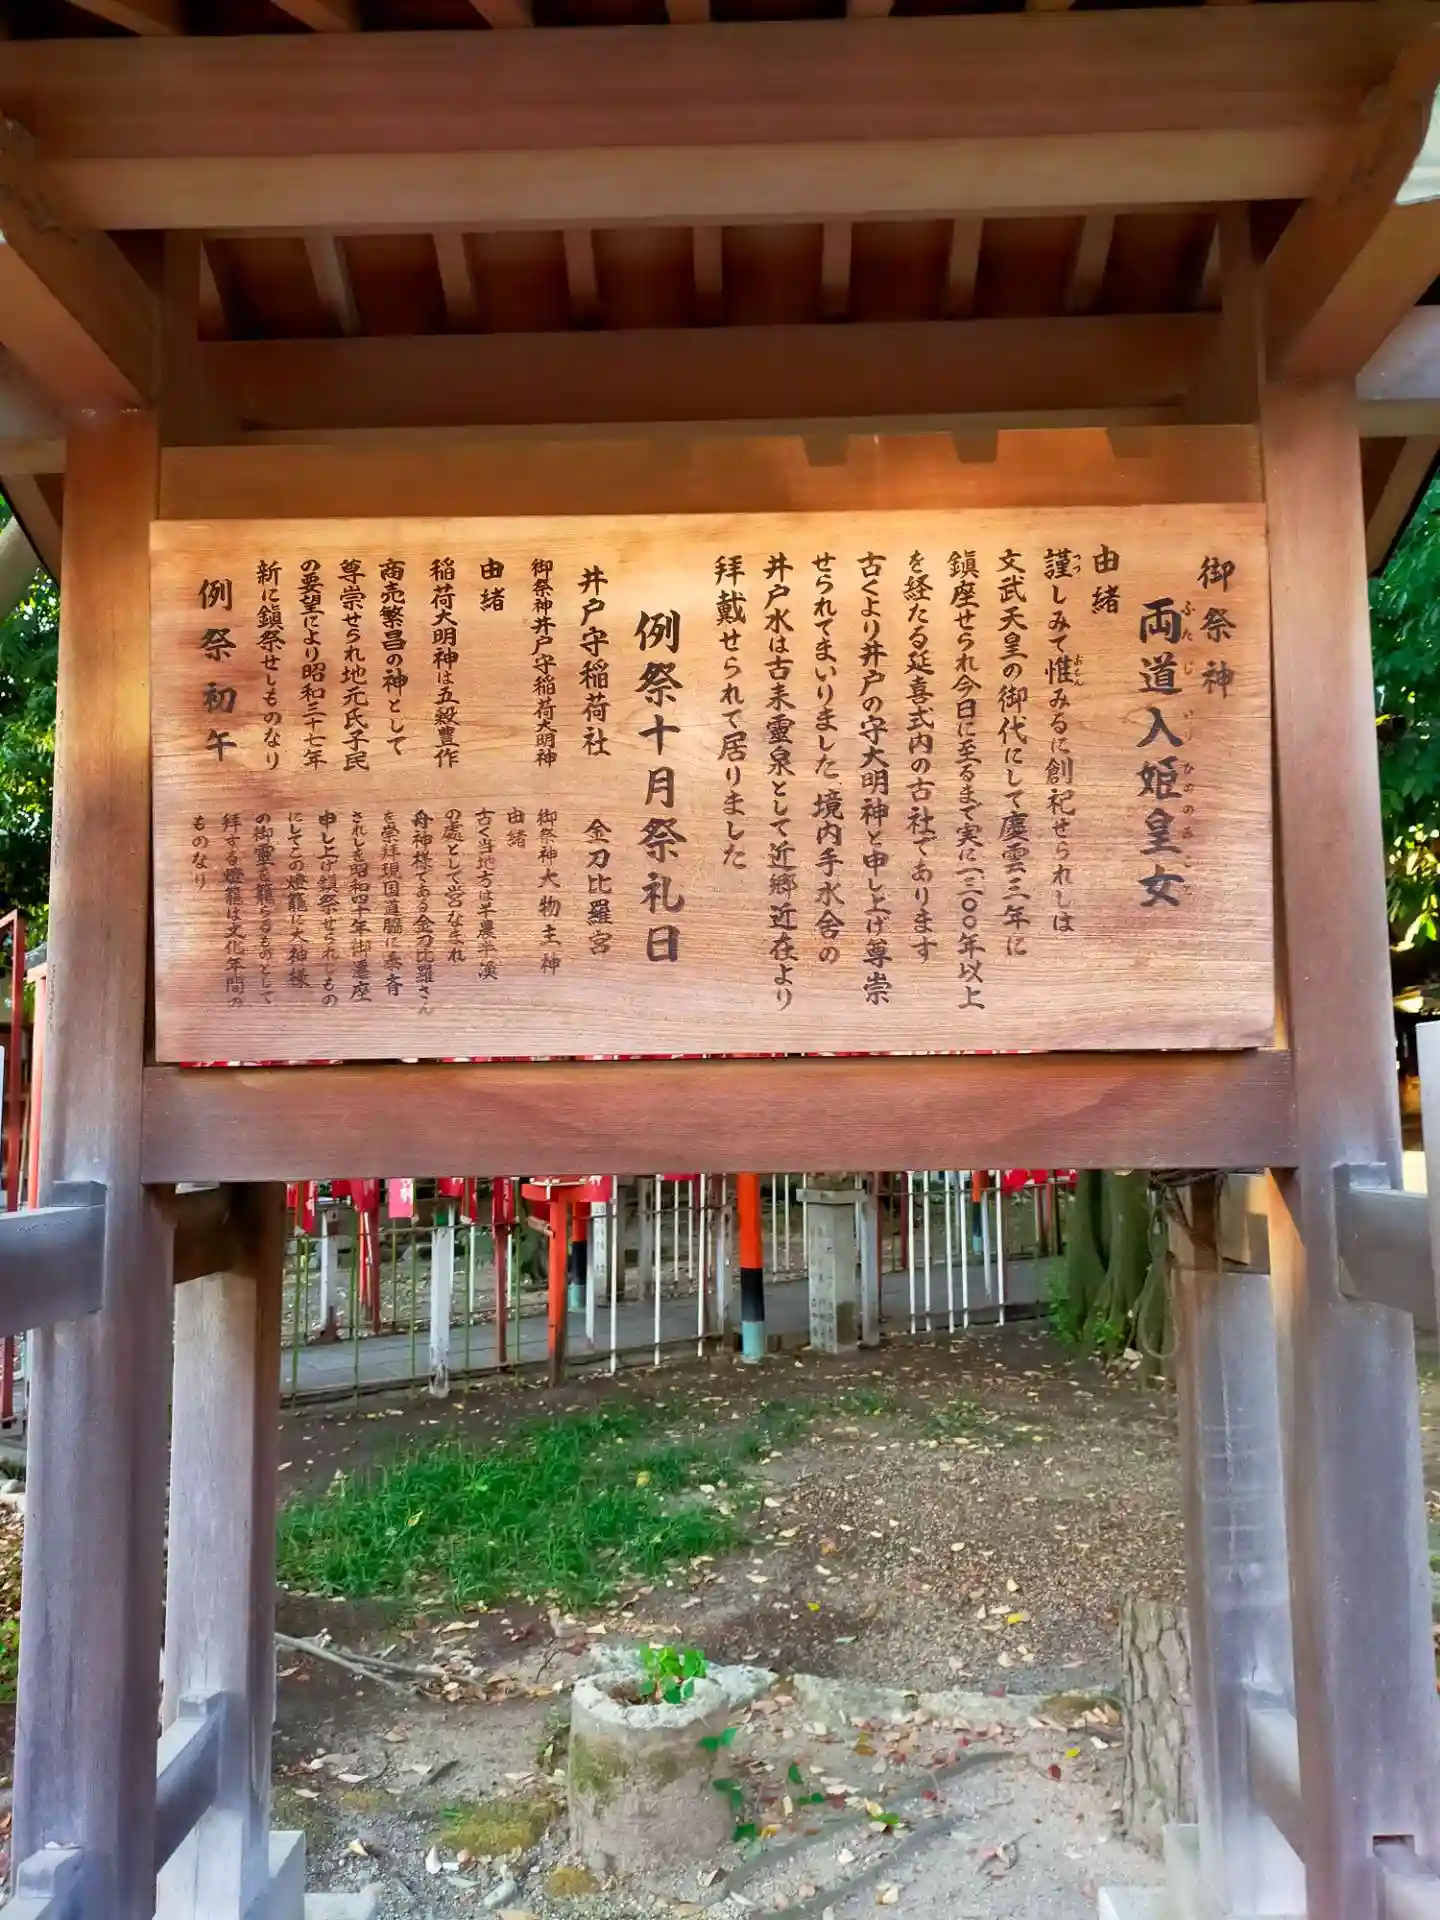 御祭神
両道入姫皇女
ふたじいりひめのみこと
由緒
謹しみて惟みるに創祀せられしは
文武天皇の御代にして慶雲三年に
鎮座せられ今日に至るまで実に一三〇〇年以上
を経たる延喜式内の古社であります
古くより井戸の守大明神と申し上げ尊崇
せられてまいりました、境内手水舎の
井戸水は古来霊泉として近郷近在より
拝戴せられて居りました
例祭十月祭礼日
井戸守稲荷社
御祭神井戸守稲荷大明神
由緒
稲荷大明神は五穀豊作
商売繁昌の神として
尊崇せられ地元氏子民
の要望により昭和三十七年
新に鎮祭せしものなり
例祭初午
金刀比羅宮
御祭神大物主神
由緒
古く当地方は半農半漁
の處として営なまれ
舟神様である金刀比羅さん
を崇拝現国道脇に奉斉
されしを昭和四十年御遷座
申し上げ鎮祭せられしもの
にしてこの燈籠に大神様
の御霊も籠らるものとして
拝する燈籠は文化年間の
ものなり